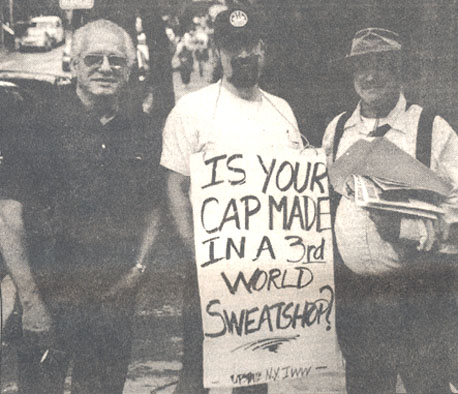 IS YOUR
CAP MADE
IN A 3rd
WORLD
SWEATSHOP?
N.Y. IWW —